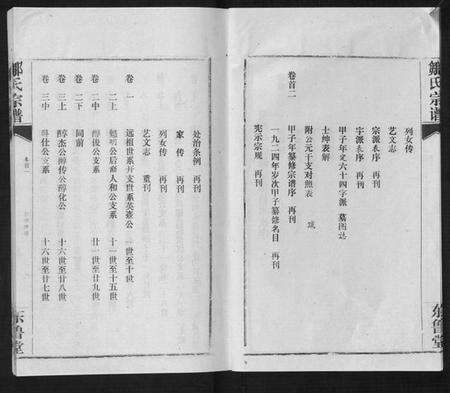 鄒氏宗谱
东鲁堂
列女传
艺文志
宗派表序 再刊
字派表序 再刊
甲子年定六十四字派 墓图誌
士绅表解
附公元干支对照表
卷首二
甲子年纂修宗谱序 再刊
一九二四年岁次甲子纂修名目 再刊
宪示宗规 再刊
处治条例 再刊
家传 再刊
列女传 再刊
艺文志 重刊
卷一
远祖世系并支世系英斋公 一世至十世
二上
勉明公后裔人和公支系 十一世至十五世
卷二中
醇俊公支系 廿一世至廿九世
卷二下
同前
卷三上
醇杰公醇传公醇化公 十六世至廿八世
卷三中
仕公支系 十六世至廿七世
鄒氏宗谱
卷首
东鲁堂